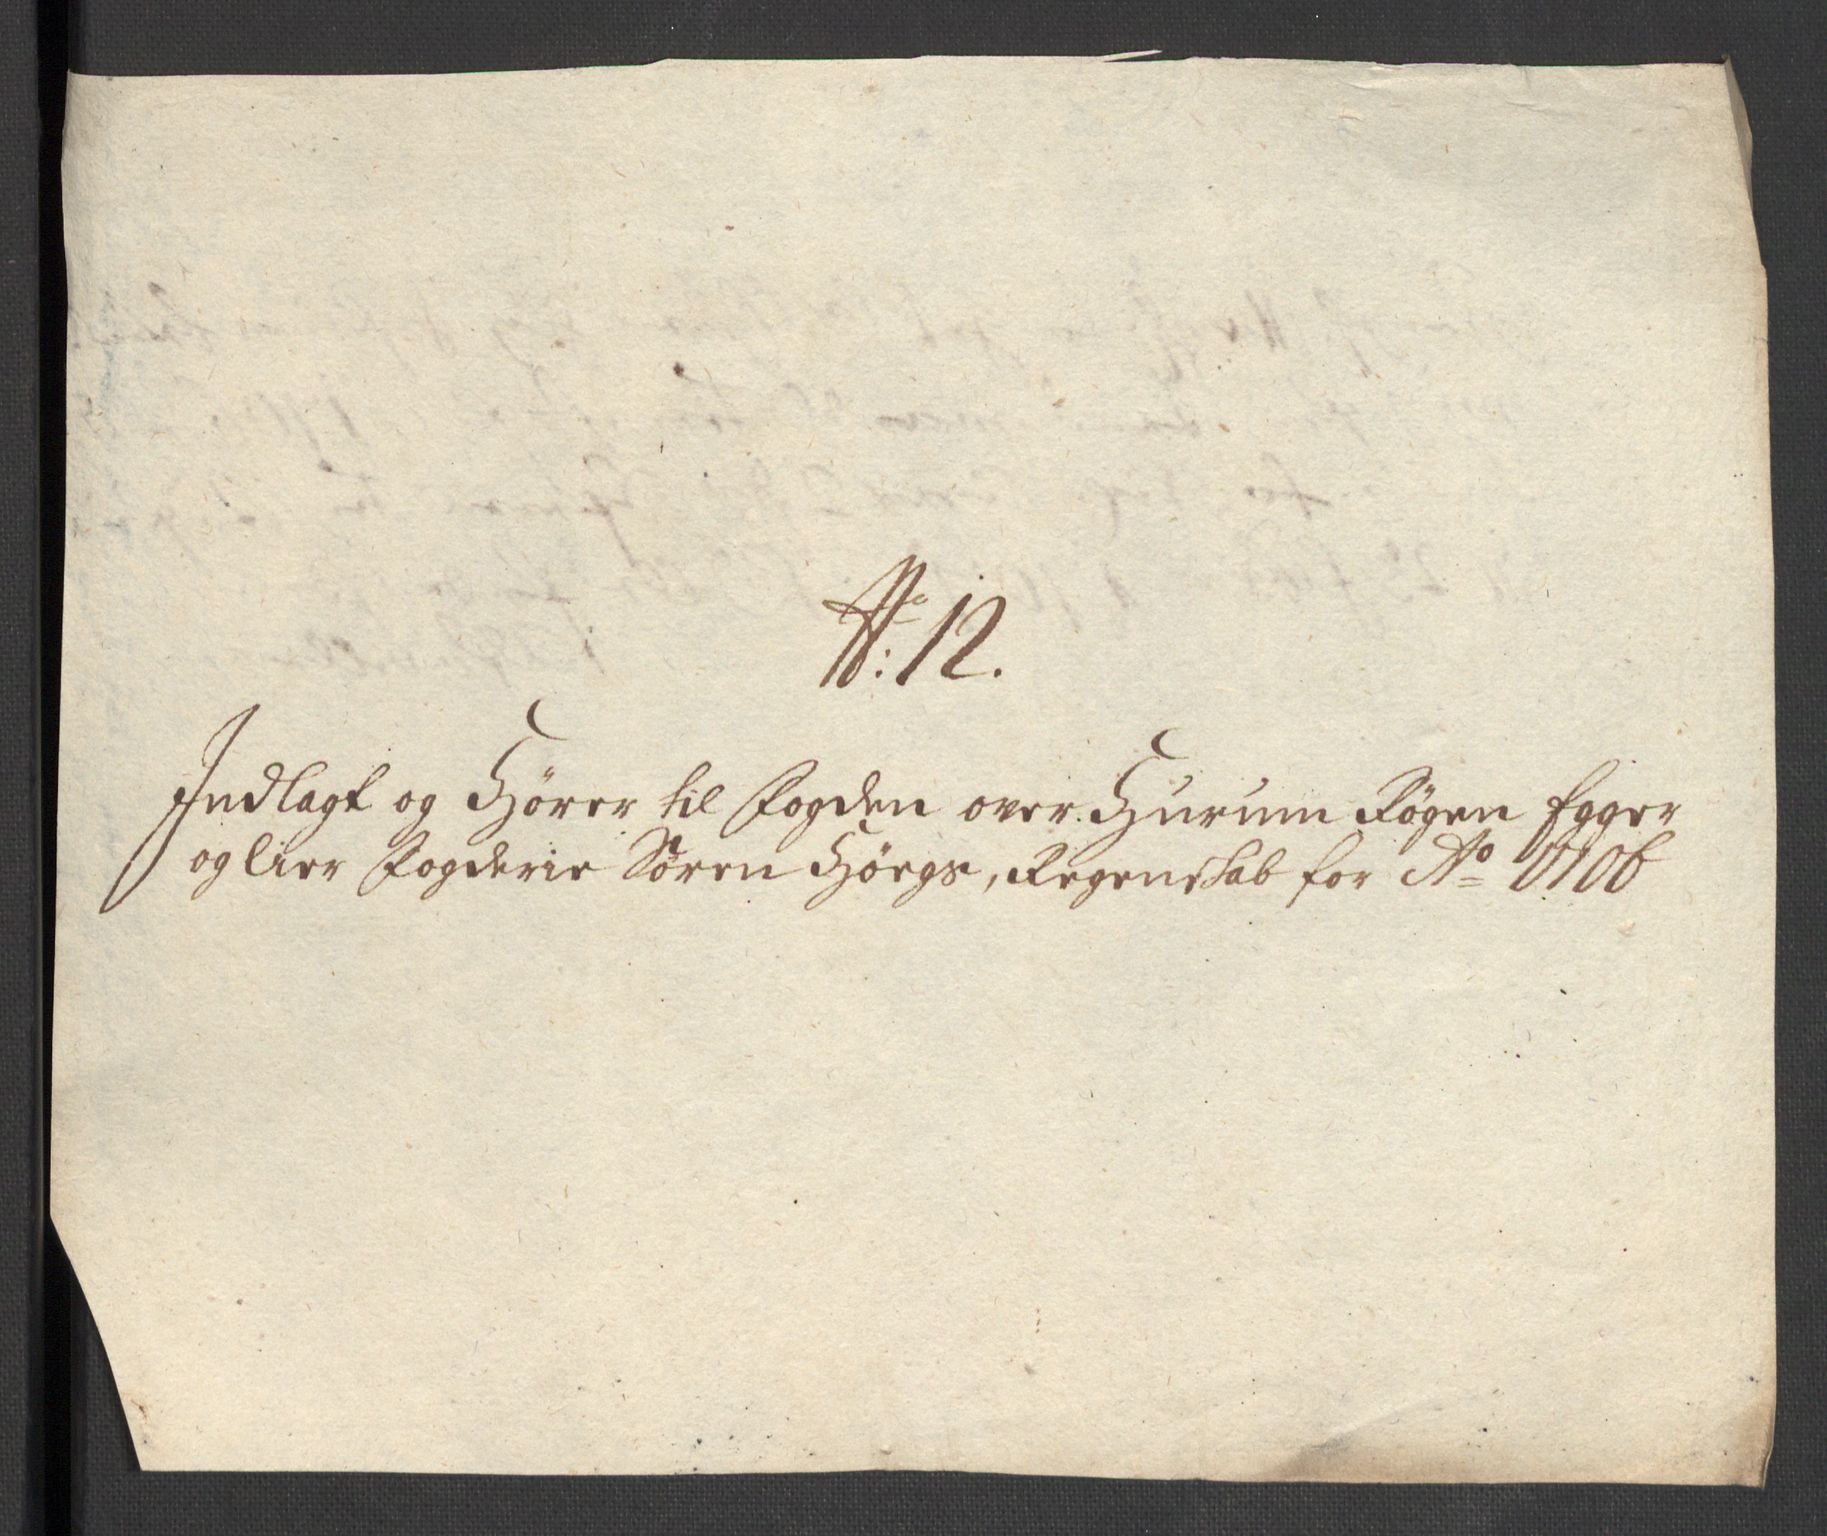 No: 12.
Indlagt og Hörer til Fogden over Hurum Röger Egger
og Lier Fogderie Sören Höegs, Regenskab for Ao 1706